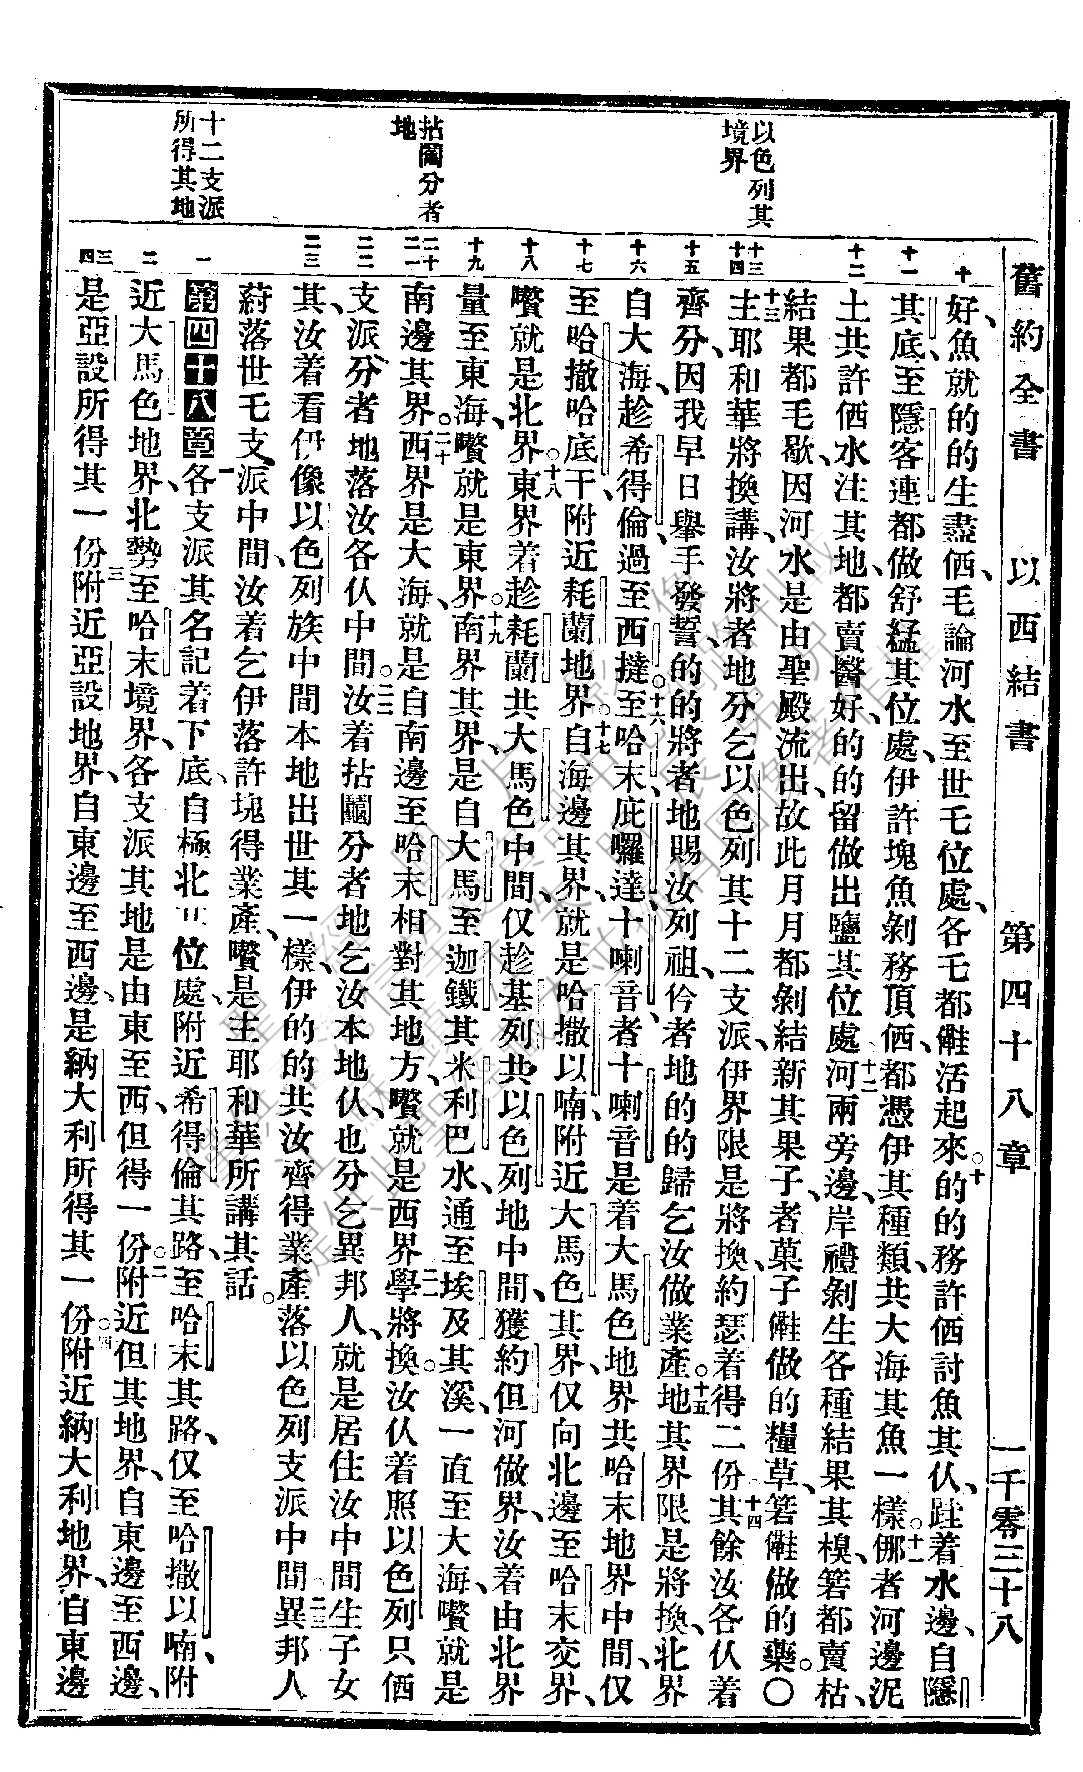 舊約全書 以西結書 第四十八章 一千零三十八
以色列其境界
拈鬮分者地
十二支派所得其地
十 十一 十二 十三 十四 十五 十六 十七 十八 十九 二十 二一 二二 二三 一 二 三 四
好、魚就的的生盡価、毛論河水至世乇位處、各乇都㑉活起來。十的的務許価討魚其仈、跬着水邊、自隱
其底、至隱客連、都做舒綘其位處、伊許塊魚剝務頂価、都憑伊其種類、共大海其魚一樣。十一㑚者河邊泥
土共許価水注其地、都賣醫好、的的留做出鹽其位處。十二河兩旁邊、岸禮剝生各種結果其樹、箬都賣枯、
結果都毛歇、因河水是由聖殿流出、故此月月都剝結新其果子、者菓子㑉做的糧草、箬㑉做的藥。〇
十三主耶和華將換講、汝將者地分乞以色列其十二支派、伊界限是將換、約瑟着得二份。十四其餘汝各仈着
齊分、因我早日舉手發誓、的的將者地賜汝列祖、仱者地的的歸乞汝做業產。十五地其界限是將換、北界
自大海、趁希得倫、過至西撻。十六至哈末、庇囉達、十喇音、者十喇音是着大馬色地界共哈末地界中間、仅
至哈撤哈底干、附近耗蘭地界。十七自海邊其界、就是哈撒以喃、附近大馬色其界、仅向北邊至哈末交界、
嚽就是北界。十八東界着趁耗蘭共大馬色中間、仅趁基列共以色列地中間獲約但河做界、汝着由北界
量至東海、嚽就是東界。十九南界其界、是自大馬至迦鐵其米利巴水、通至埃及其溪、一直至大海、嚽就是
南邊其界。二十西界是大海、就是自南邊至哈末相對其地方、嚽就是西界。二一學將換、汝仈着照以色列只価
支派分者地落汝各仈中間。二二汝着拈鬮分者地乞汝本地仈、也分乞異邦人、就是居住汝中間生子女
其、汝着看伊像以色列族中間本地出世其一樣、伊的的共汝齊得業產、落以色列支派中間。二三異邦人
蔚落世乇支派中間、汝着乞伊落許塊得業產、嚽是主耶和華所講其話。
第四十八章 一各支派其名記着下底、自極北其位處、附近希得倫其路、至哈末其路、仅至哈撒以喃、附
近大馬色地界、北勢至哈末境界、各支派其地是由東至西、但得一份。二附近但其地界、自東邊至西邊、
是亞設所得其一份。三附近亞設地界、自東邊至西邊、是納大利所得其一份。四附近納大利地界、自東邊